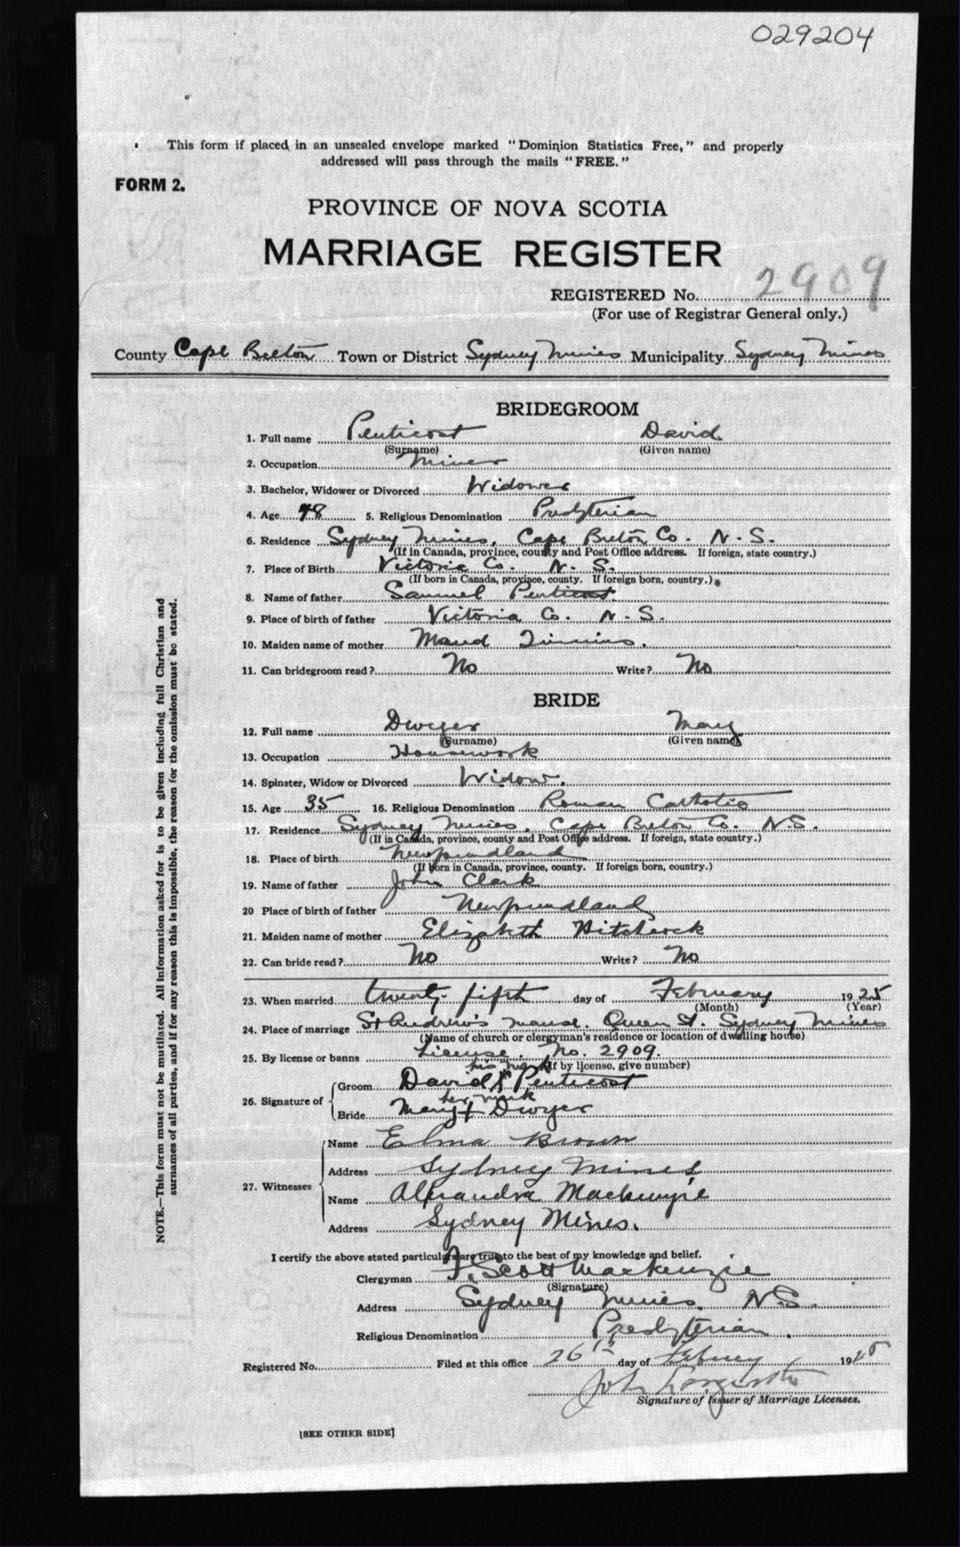 029204
This form if placed in an unsealed envelope marked "Dominion Statistics Free," and properly
addressed will pass through the mails "FREE."
FORM 2.
PROVINCE OF NOVA SCOTIA
MARRIAGE REGISTER
REGISTERED No. 2909
(For use of Registrar General only.)
County Cape Breton Town or District Sydney Mines Municipality Sydney Mines
BRIDEGROOM
1. Full name Penticost David
(Surname) (Given name)
2. Occupation Miner
3. Bachelor, Widower or Divorced Widower
4. Age 48 5. Religious Denomination Presbyterian
6. Residence Sydney Mines, Cape Breton Co. N.S.
(If in Canada, province, county and Post Office address. If foreign, state country.)
7. Place of Birth Victoria Co. N.S.
(If born in Canada, province, county. If foreign born, country.)
8. Name of father Samuel Penticost
9. Place of birth of father Victoria Co. N.S.
10. Maiden name of mother Maud
11. Can bridegroom read? No Write? No
BRIDE
12. Full name Dwyer Mary
(Surname) (Given name)
13. Occupation Housework
14. Spinster, Widow or Divorced Widow.
15. Age 35 16. Religious Denomination Roman Catholic
17. Residence Sydney Mines, Cape Breton Co. N.S.
(If in Canada, province, county and Post Office address. If foreign, state country.)
18. Place of birth Newfoundland
(If born in Canada, province, county. If foreign born, country.)
19. Name of father John Clark
20 Place of birth of father Newfoundland
21. Maiden name of mother Elizabeth Hitchcock
22. Can bride read? No Write? No
23. When married twenty-fifth day of February 1925
(Month) (Year)
24. Place of marriage St Andrew's manse. Queen St. Sydney Mines
(Name of church or clergyman's residence or location of dwelling house)
25. By license or banns License. No. 2909.
(If by license, give number)
his mark
26. Signature of Groom David X Penticost
her mark
Bride Mary + Dwyer
27. Witnesses Name Elma Brown
Address Sydney Mines
Name Alexandra Mackenzie
Address Sydney Mines.
I certify the above stated particulars are true to the best of my knowledge and belief.
Clergyman F. Scott Mackenzie
(Signature)
Address Sydney Mines. N.S.
Religious Denomination Presbyterian.
Registered No. Filed at this office 26th day of February 1925
John
Signature of Issuer of Marriage Licenses.
[SEE OTHER SIDE]
NOTE.—This form must not be mutilated. All information asked for is to be given including full Christian and
surnames of all parties, and if for any reason this is impossible, the reason for the omission must be stated.